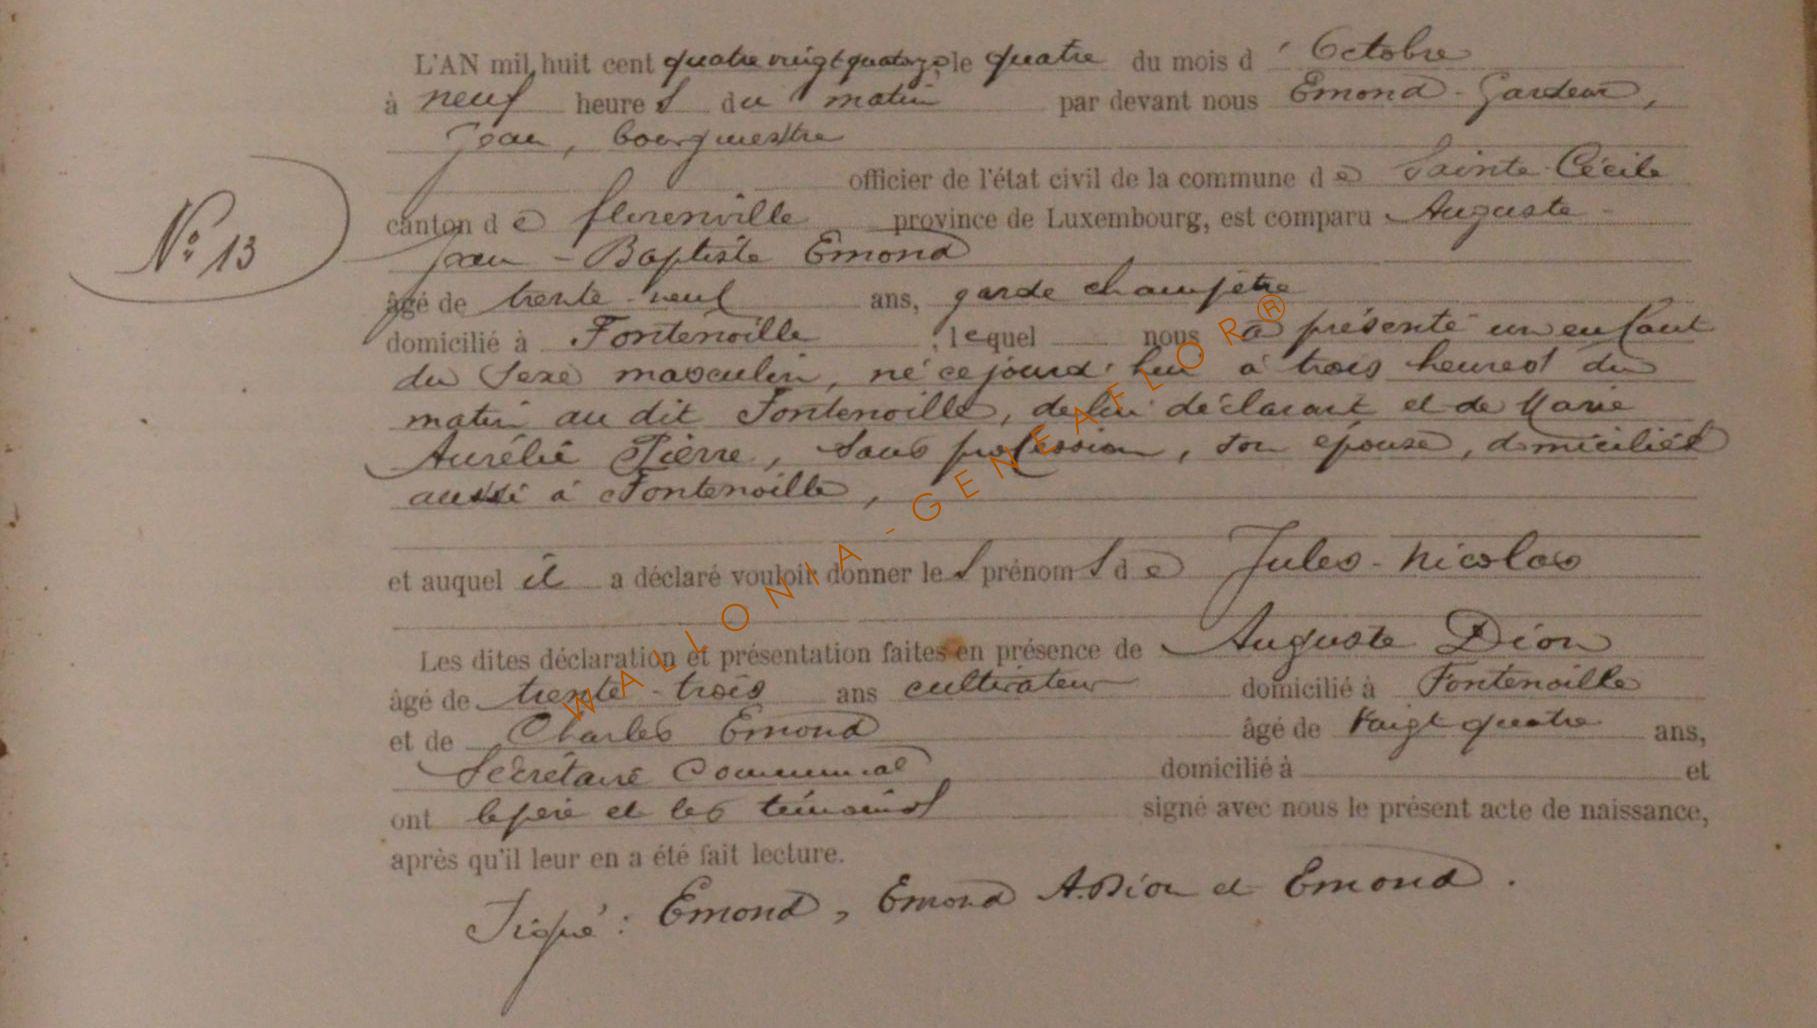 L'AN mil huit cent quatre vingt quatorze le quatre du mois d' Octobre
à neuf heures du matin par devant nous Emond-Gardeur,
Jean, bourgmestre
officier de l'état civil de la commune de Sainte-Cécile
N° 13
canton de florenville province de Luxembourg, est comparu Auguste-
Jean-Baptiste Emond
âgé de trente-neuf ans, garde champêtre
domicilié à Fontenoille, lequel nous a présenté un enfant
du Sexe masculin, né cejourd'hui à trois heures du
matin au dit Fontenoille, de lui déclarant et de Marie
Aurélie Pierre, sans profession, son épouse, domiciliée
aussi à Fontenoille,
et auquel il a déclaré vouloir donner les prénoms de Jules-Nicolas
Les dites déclaration et présentation faites en présence de Auguste Dion
âgé de trente-trois ans cultivateur domicilié à Fontenoille
et de Charles Emond âgé de Vaigt quatre ans,
Secrétaire Communal domicilié à et
ont le père et les témoins signé avec nous le présent acte de naissance,
après qu'il leur en a été fait lecture.
Signé: Emond, Emond A. Dion et Emond.
WALLONIA-GENEAFLOR®